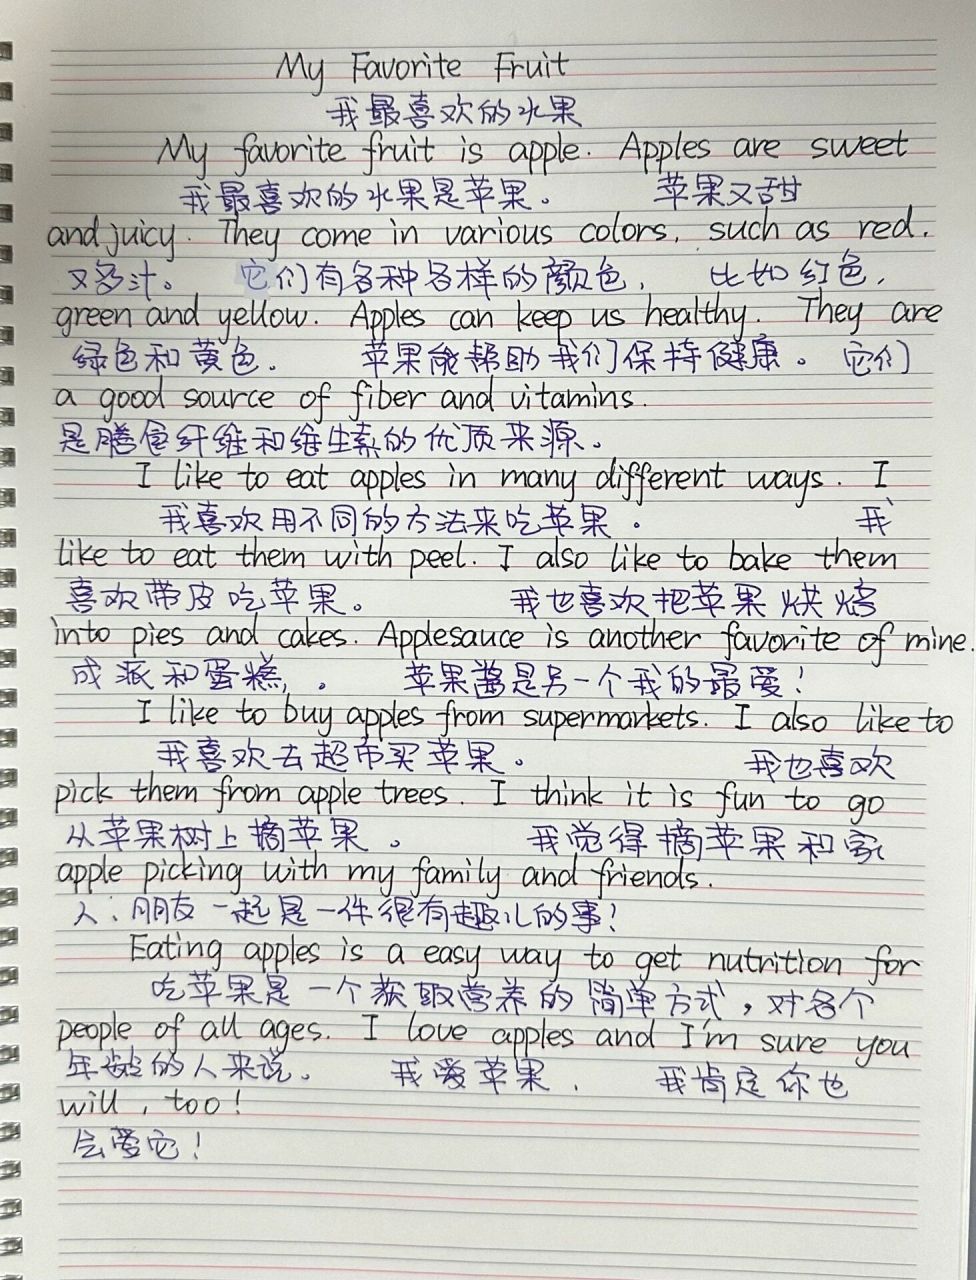 My Favorite Fruit
我最喜欢的水果
My favorite fruit is apple. Apples are sweet
我最喜欢的水果是苹果。 苹果又甜
and juicy. They come in various colors, such as red.
又多汁。 它们有各种各样的颜色, 比如红色,
green and yellow. Apples can keep us healthy. They are
绿色和黄色。 苹果能帮助我们保持健康。 它们
a good source of fiber and vitamins.
是膳食纤维和维生素的优质来源。
I like to eat apples in many different ways. I
我喜欢用不同的方法来吃苹果。 我
like to eat them with peel. I also like to bake them
喜欢带皮吃苹果。 我也喜欢把苹果烘焙
into pies and cakes. Applesauce is another favorite of mine.
成派和蛋糕,。 苹果酱是另一个我的最爱!
I like to buy apples from supermarkets. I also like to
我喜欢去超市买苹果。 我也喜欢
pick them from apple trees. I think it is fun to go
从苹果树上摘苹果。 我觉得摘苹果和家
apple picking with my family and friends.
人、朋友一起是一件很有趣儿的事!
Eating apples is a easy way to get nutrition for
吃苹果是一个获取营养的简单方式,对各个
people of all ages. I love apples and I'm sure you
年龄的人来说。 我爱苹果, 我肯定你也
will, too!
会爱它!